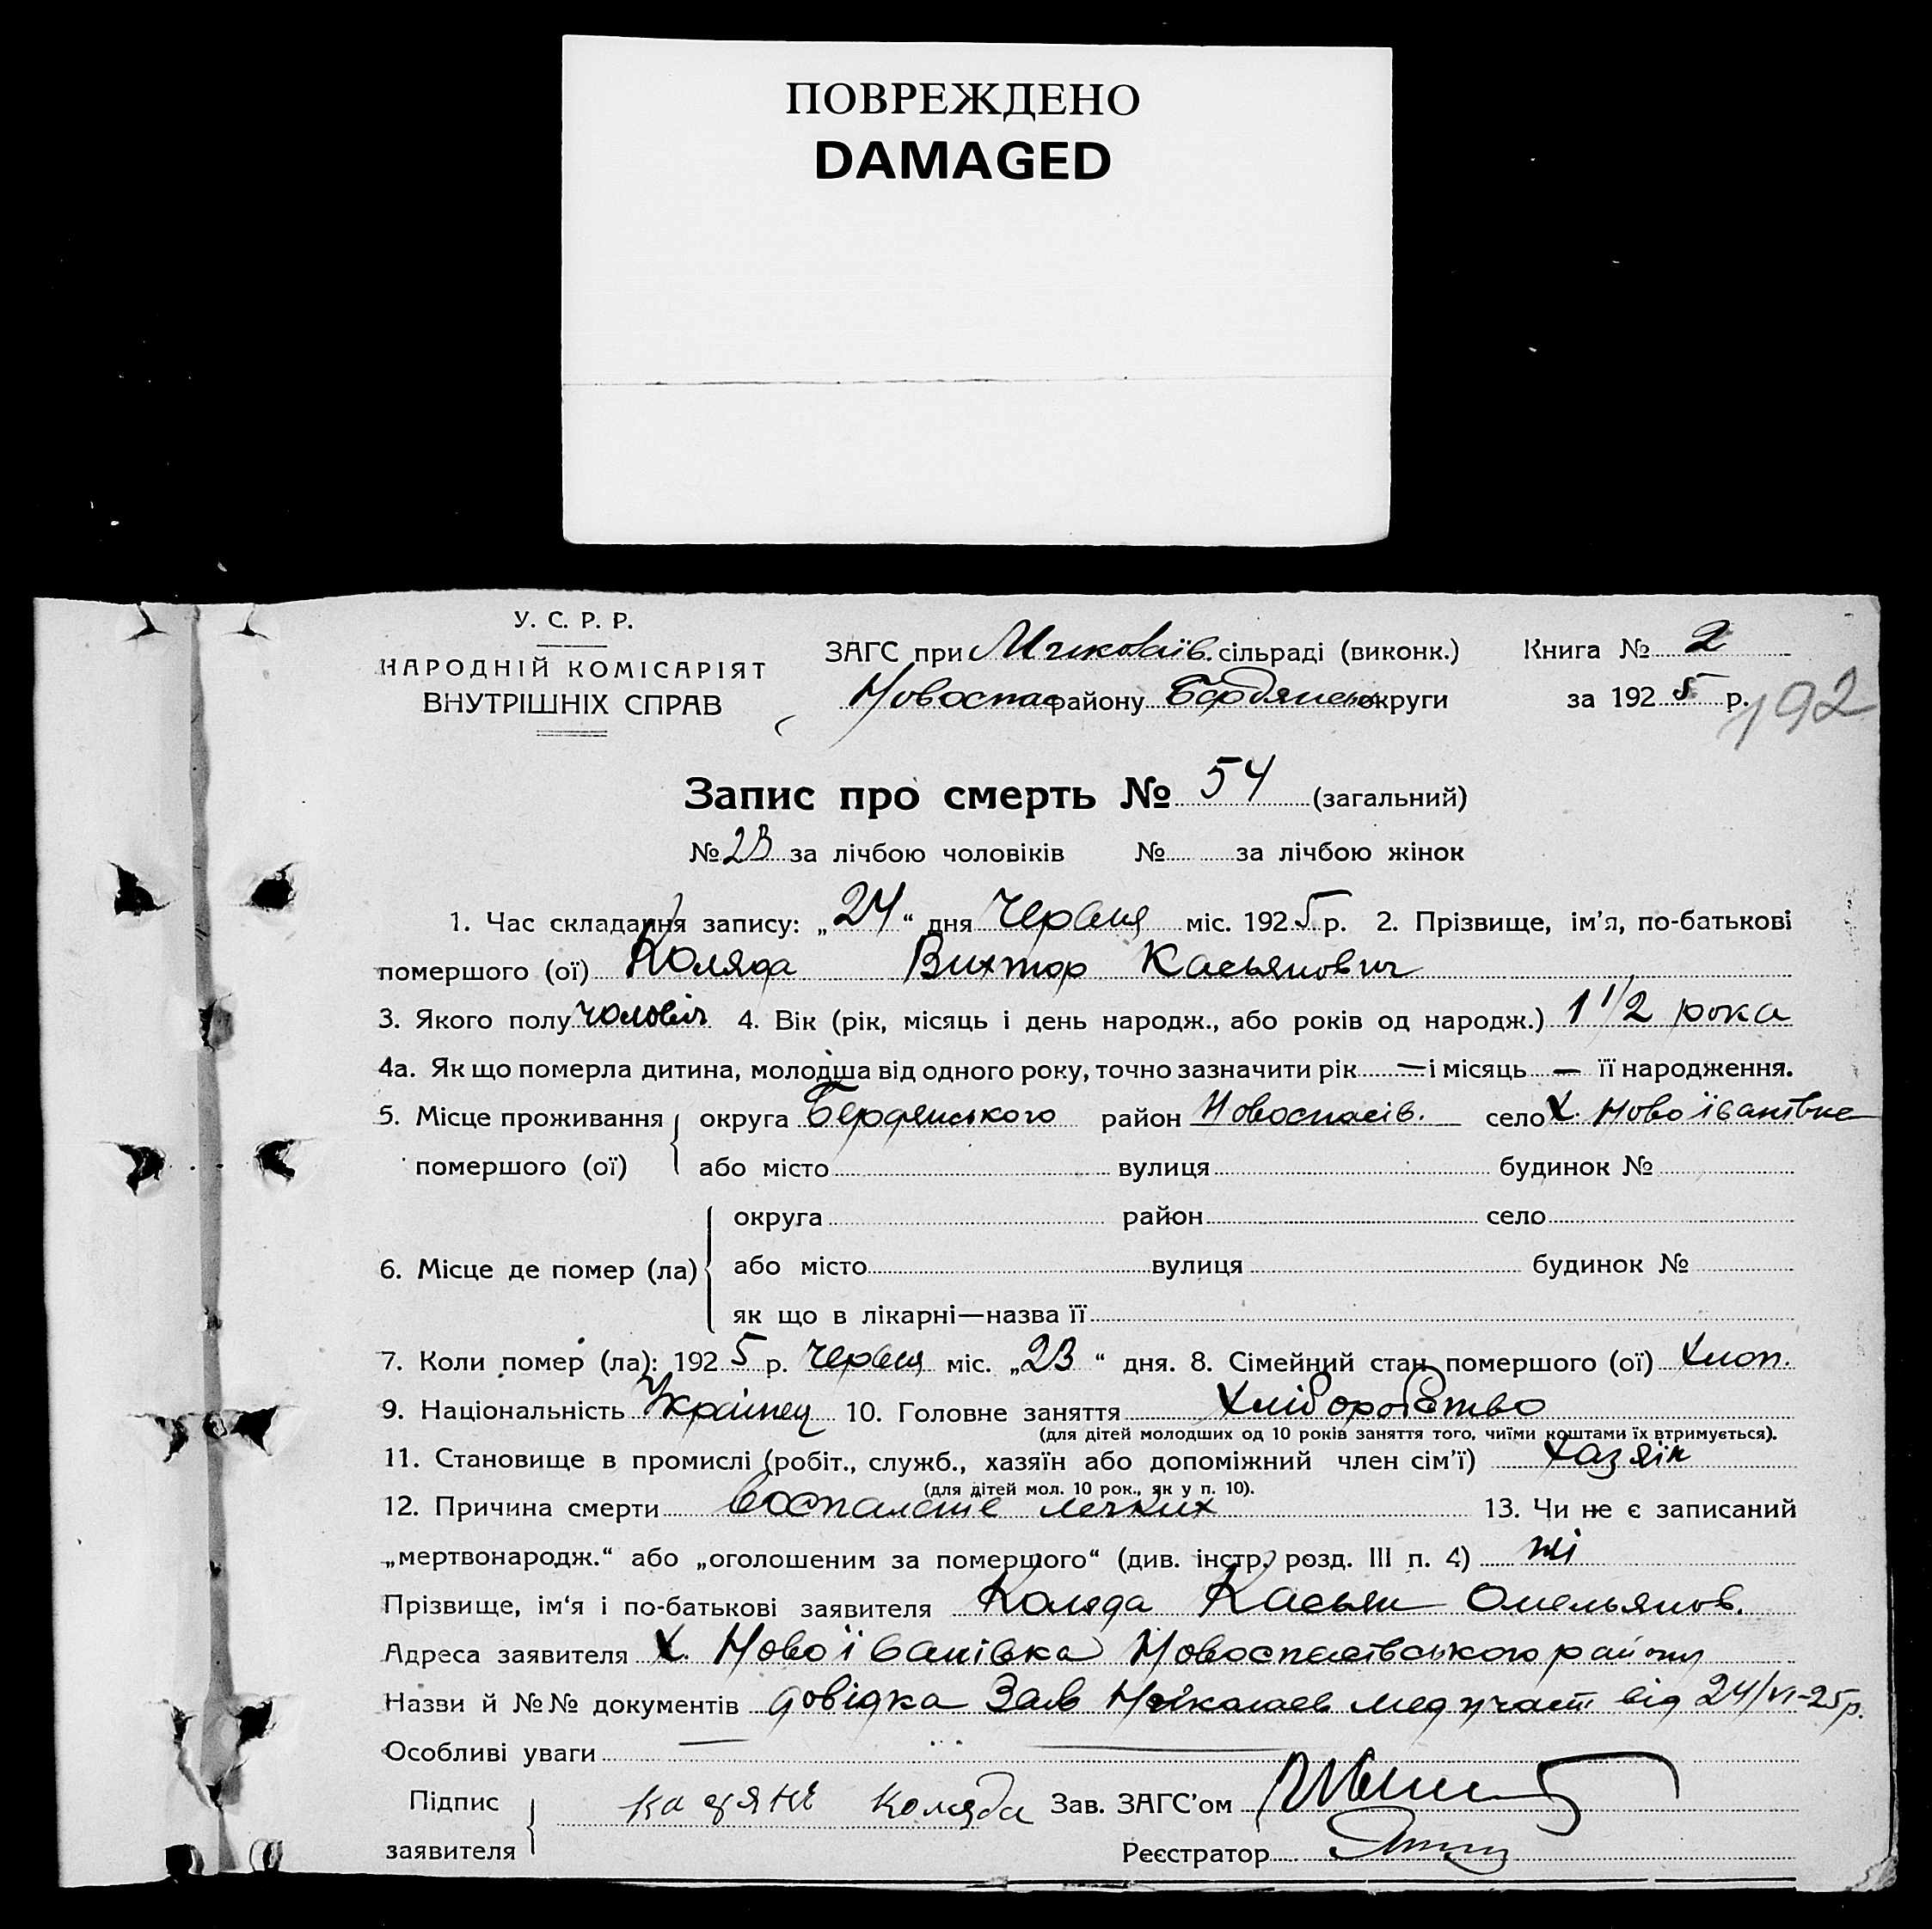 ПОВРЕЖДЕНО
DAMAGED
У. С. Р. Р.
НАРОДНІЙ КОМІСАРІЯТ
ВНУТРІШНІХ СПРАВ
ЗАГС при Миколаїв. сільраді (виконк.) Книга № 2
Новоспас району Бердянськ округи за 1925 р.
192
Запис про смерть № 54 (загальний)
№ 23 за лічбою чоловіків № за лічбою жінок
1. Час складання запису: „24“ дня Червня міс. 1925 р. 2. Прізвище, ім’я, по-батькові
помершого (ої) Коляда Вихтор Касьянович
3. Якого полу чоловіч 4. Вік (рік, місяць і день народж., або років од народж.) 1 1/2 рока
4а. Як що померла дитина, молодша від одного року, точно зазначити рік — і місяць — її народження.
5. Місце проживання округа Бердянського район Новоспасів. село х. Ново їванівка
помершого (ої) або місто вулиця будинок №
округа район село
6. Місце де помер (ла) або місто вулиця будинок №
як що в лікарні—назва її
7. Коли помер (ла): 1925 р. Червня міс. „23“ дня. 8. Сімейний стан помершого (ої) хлоп.
9. Національність Українец 10. Головне заняття хліборобство
(для дітей молодших од 10 років заняття того, чиїми коштами їх втримується).
11. Становище в промислі (робіт., служб., хазяїн або допоміжний член сім’ї) хазяїн
(для дітей мол. 10 рок., як у п. 10).
12. Причина смерти воспаление легких 13. Чи не є записаний
„мертвонародж.“ або „оголошеним за помершого“ (див. інстр. розд. III п. 4) ні
Прізвище, ім‘я і по-батькові заявителя Коляда Касьян Омельянов.
Адреса заявителя х. Ново їванівка Новоспасівського району
Назви й №№ документів довідка Зав Миколаев мед участ від 24/VI-25р.
Особливі уваги —
Підпис Касяні Коляда Зав. ЗАГС’ом
заявителя Реєстратор